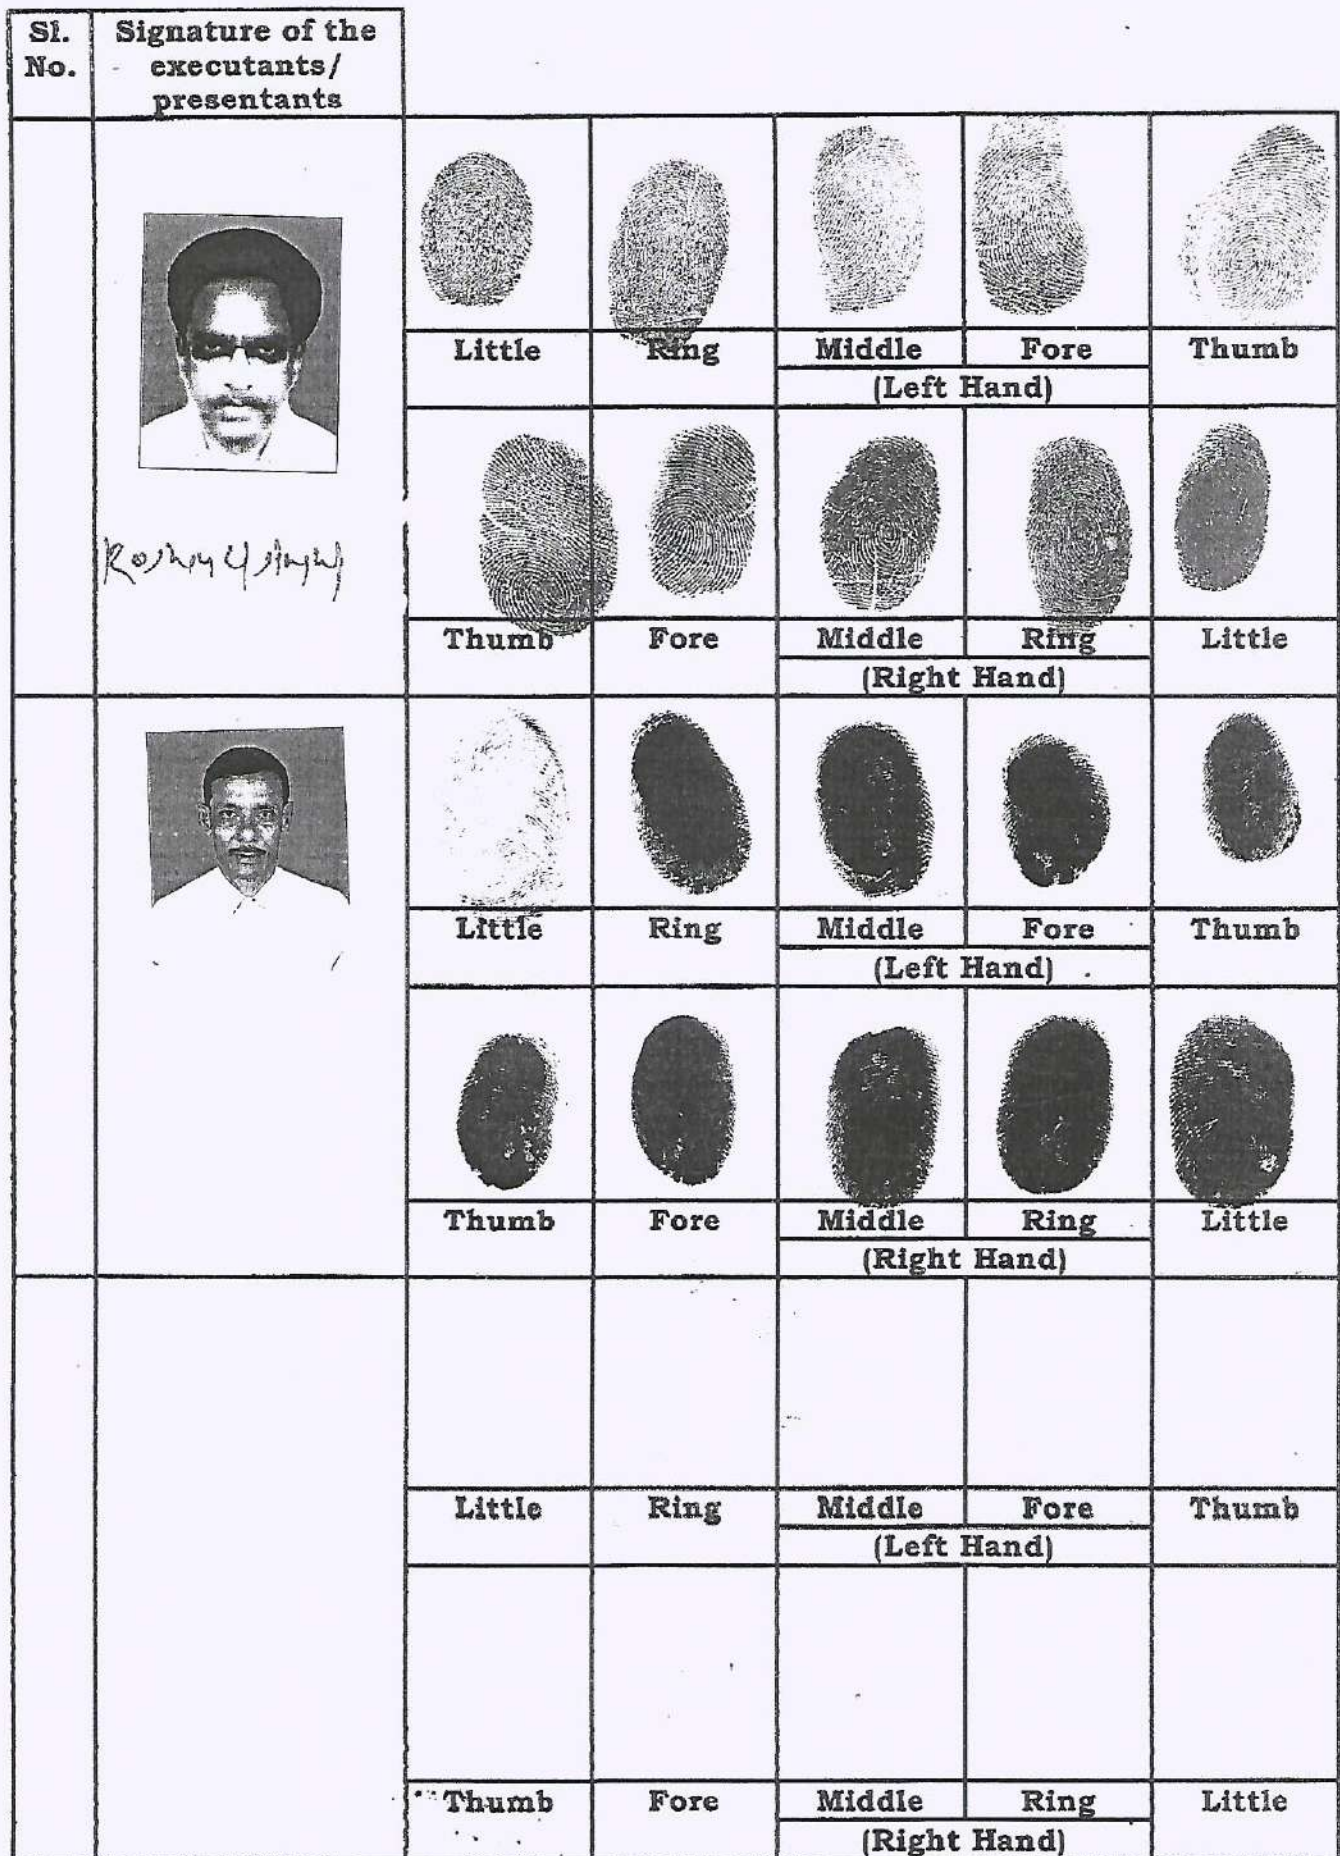 Sl. No.
Signature of the
executants/
presentants
Little Ring Middle Fore Thumb
(Left Hand)
Thumb Fore Middle Ring Little
(Right Hand)
Little Ring Middle Fore Thumb
(Left Hand)
Thumb Fore Middle Ring Little
(Right Hand)
Little Ring Middle Fore Thumb
(Left Hand)
Thumb Fore Middle Ring Little
(Right Hand)